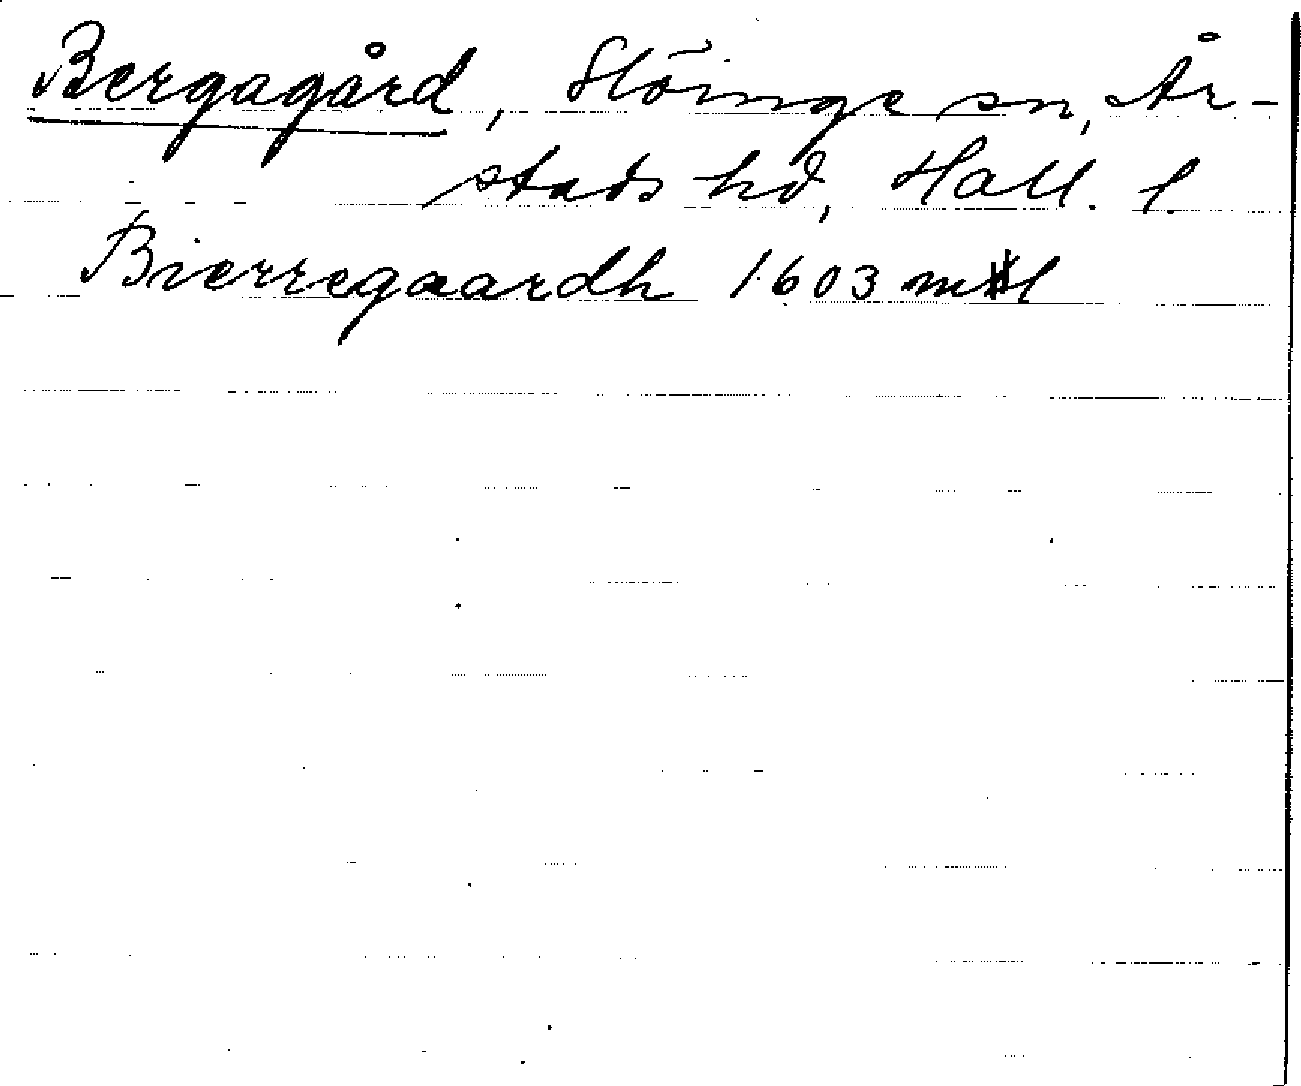 Bergagård, Slöinge sn, År-
stads hd, Hall. l.
Bierregaardh 1603 ml